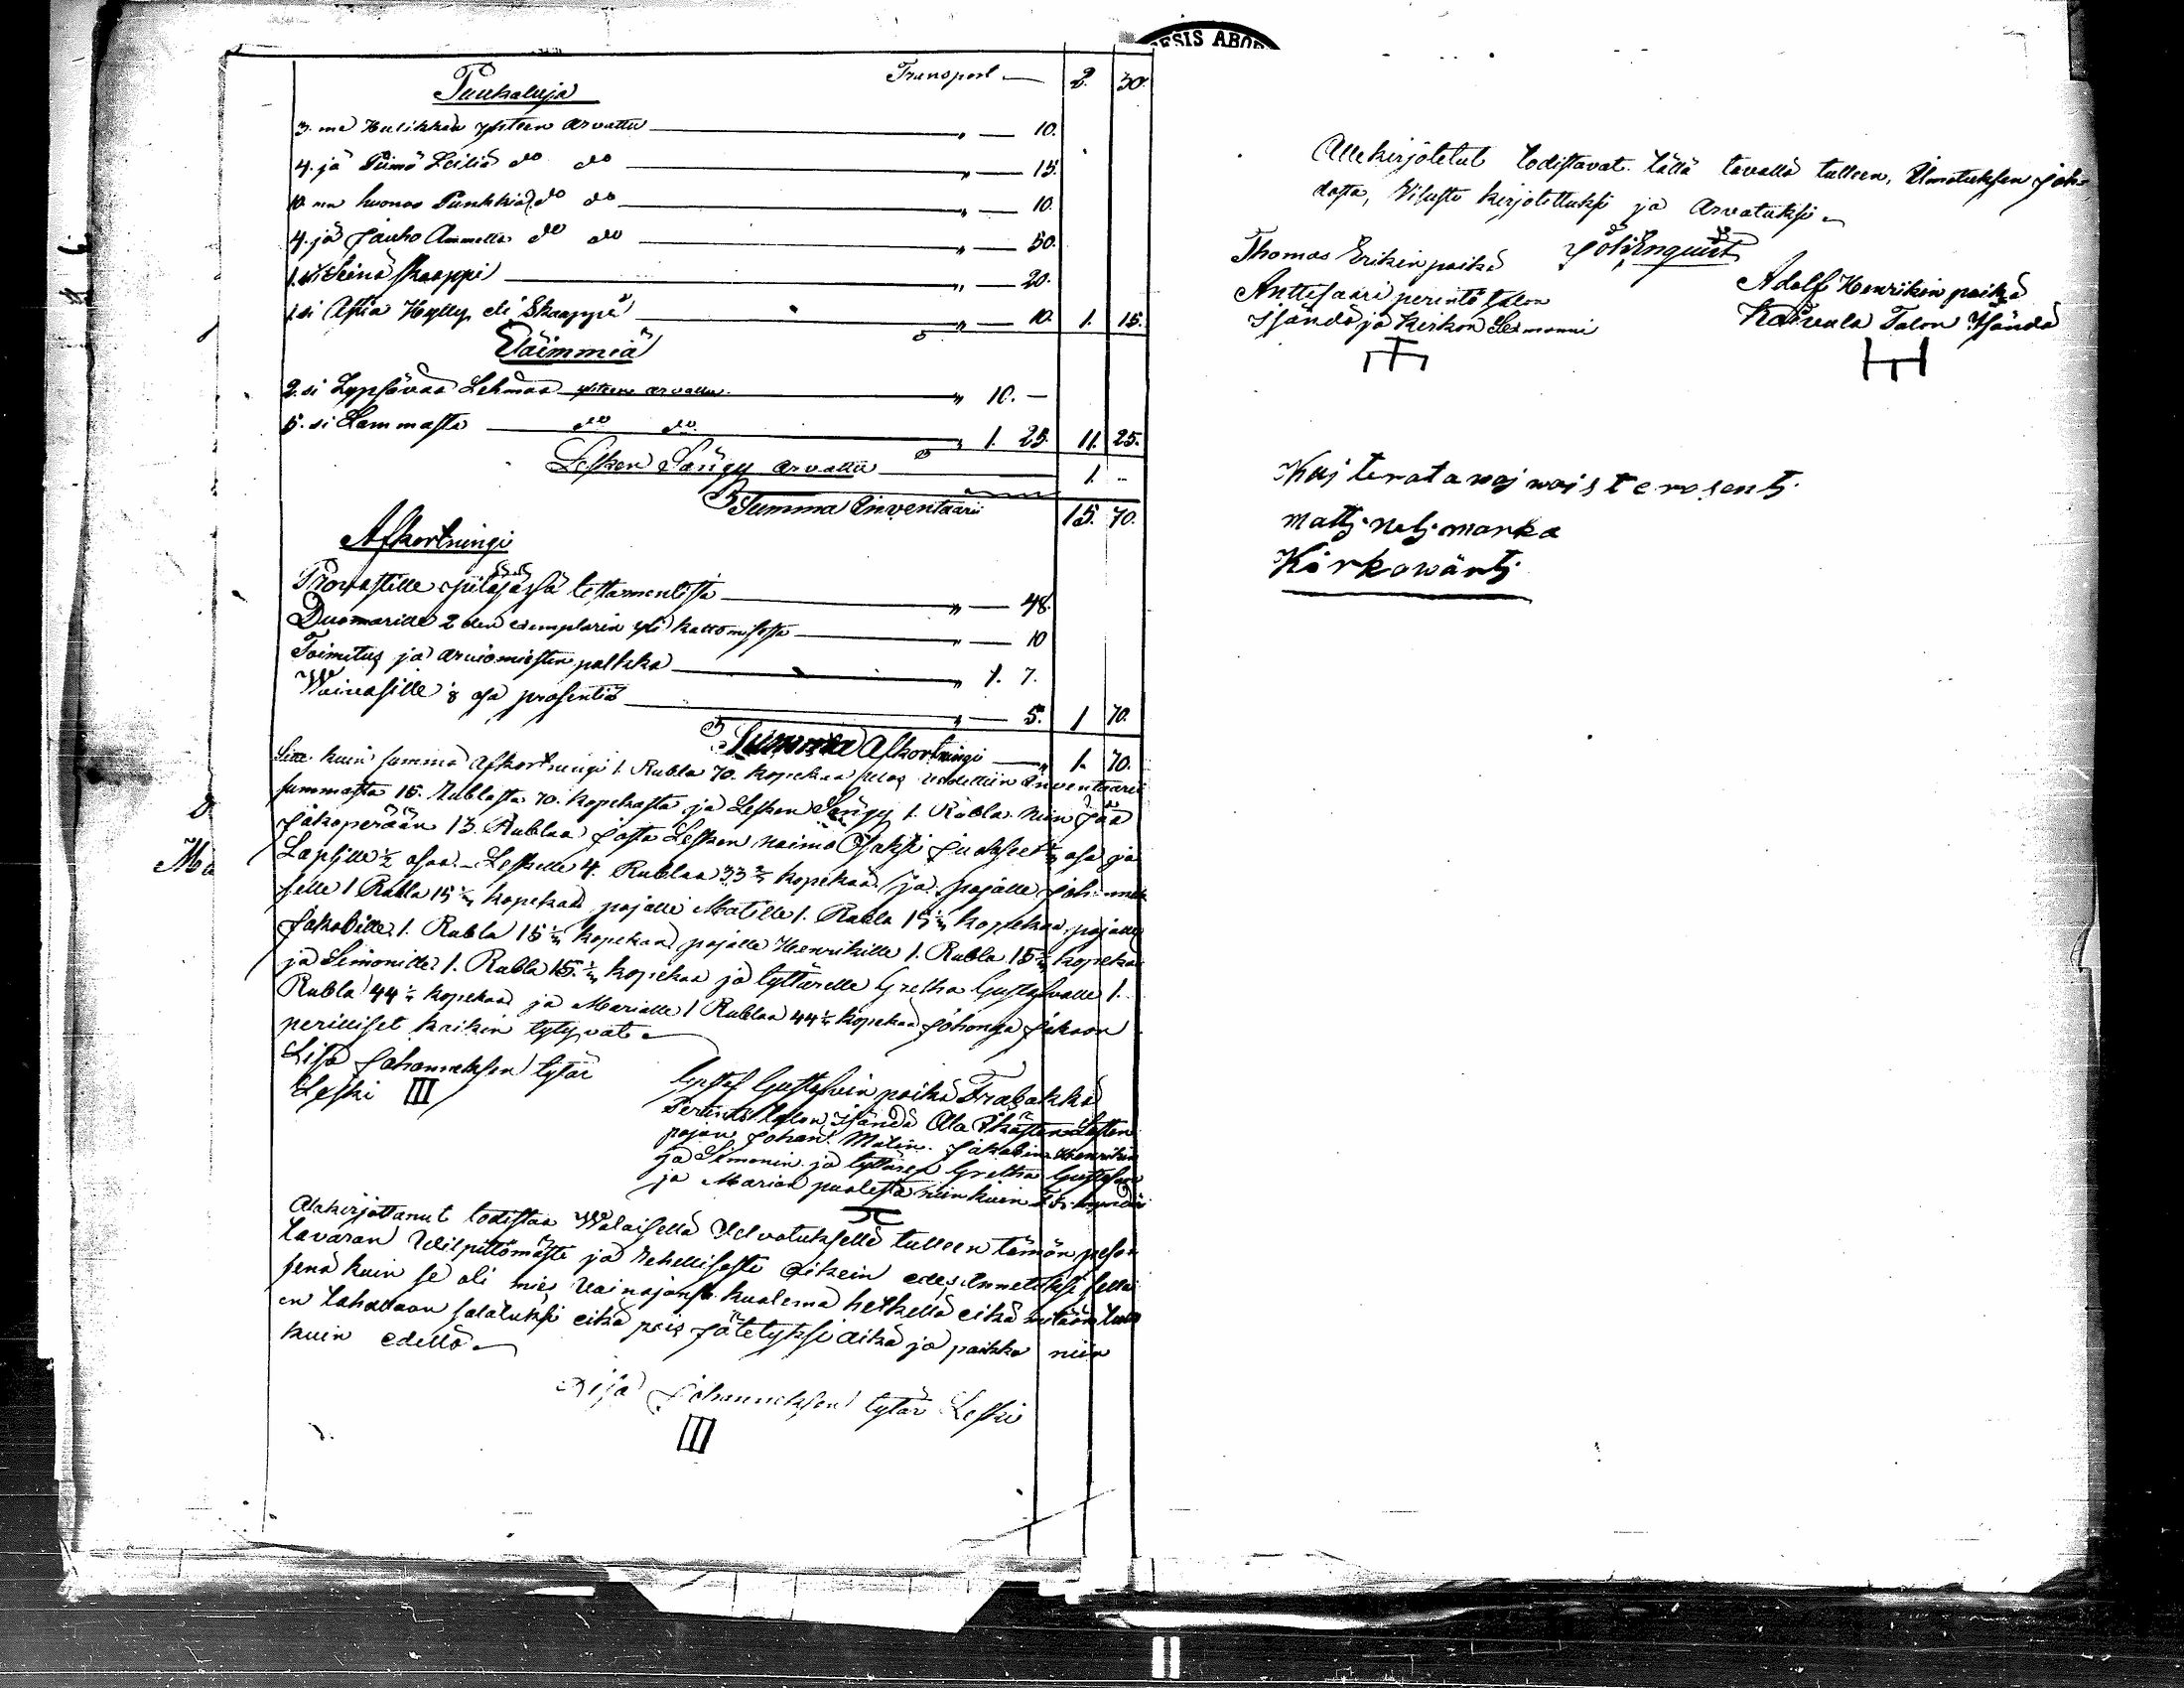 ESIS ABO
Puukaluja Transport — 2. 30.
3. ma Kulikkaa yhteen arvattu — " — 10.
4. jä Piimä Leiliä do do — " — 15.
10. na huonoo Punkkia do do — " — 10.
4. jä Jauho Ammetta do do — " — 50.
1. si Seinä skaappi — " — 20.
1. si Astia Hylly eli Skaappi — " — 10. 1. 15.
Eläimmiä
2. si Lypsävää Lehmää yhteen arvattu — " 10. —
5. si Lammasta — do do — " 1. 25. 11. 25.
Lesken Sängy arvattu — 1. –
Summa Inventaarii 15. 70.
Afkortningi
Provastille spitäjässä testamentissa — " — 48.
Duomarille 2 den exemplarin yli kattomisesta — " — 10
Toimitus ja arviomiesten palkka — " 1. 7.
Waivasille 8 osa prosentiä — " — 5. 1 70.
Summa Afkortningi — " 1. 70.
kuin summa Afkortningi 1. Rubla 70. kopekaa Inventaarii
summasta 15. Rublasta 70. kopekasta ja Lesken Sängy 1. Rubla. Niin Jää
Jakoperään 13. Rublaa josta Lesken naima Osaksi osa ja
Lapsille 2/3 osaa — Leskelle 4. Rublaa 33 1/3 kopekaa ja pojalle Johannek
selle 1 Rubla 15 kopekaa pojalle Matille 1. Rubla 15 kopekaa, pojalle
Jakobille 1. Rubla 15 kopekaa pojalle Henrikille 1. Rubla 15 kopekaa
ja Simonille 1. Rubla 15. kopekaa ja tyttärelle Gretha Gustafvalle 1.
Rubla 44 kopekaa ja Marialle 1 Rublaa 44 kopekaa Johonga Jakoon
perilliset kaikin tytyvät
Lisa Johanneksen tytär
Leski III
Gustaf Gustafvin poika Frabakka
Perintö Talon Isändä Ala Ikäisten Lasten
pojan Johan. Matin. Jakobin Henrikin
ja Simonin ja tyttären Gretha Gustafvan
ja Marian puolesta niinkuin
Alakirjottanut todistaa Walaisella Velvotuksella tulleen tämän pesän
tavaran Wilpittömästi ja Rehellisesti oikein edes annetuksi sellai
sena kuin se oli mies Vainajansa kuoleman hetkellä eikä mitään tule
en tahallaan salatuksi eikä pois jätetyksi aika ja paikka niin
kuin edellä
Lisa Johanneksen tytär Leski
III
Allekirjotetut todistavat tällä tavalla tulleen, Ilmotuksen joh
dosta, Visusti kirjotettuksi ja Arvatuksi
Thomas Erikin poika
Anttisaari perintö talon
Isändä ja Kirkon Sexmanni
Joh Enquist
Adolf Henrikin poika
Kaivula Talon Isändä
Kuj terata waj wais te rosenti
matti neljmarka
Kirkowärti